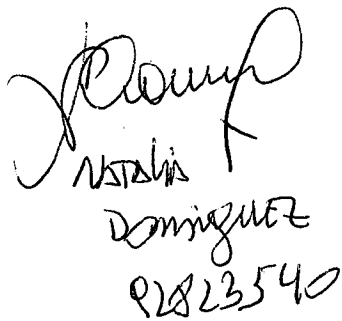 Natalia
Dominguez
92823540